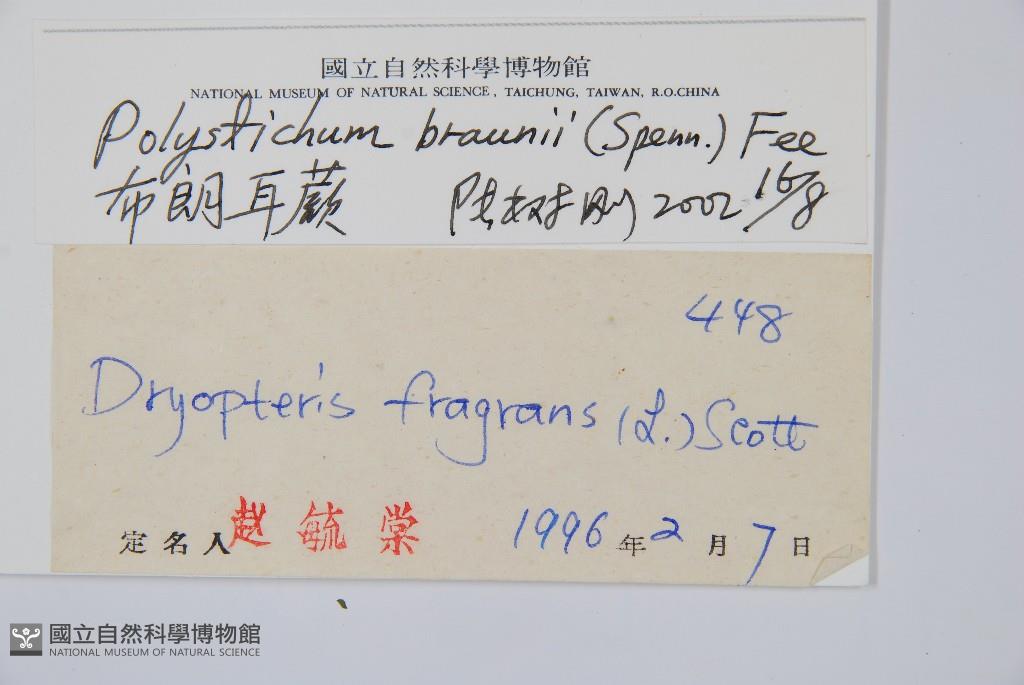 國立自然科學博物館
NATIONAL MUSEUM OF NATURAL SCIENCE, TAICHUNG, TAIWAN, R.O.CHINA
Polystichum braunii (Spenn.) Fee
布朗耳蕨 陸树刚 2002 16/8
448
Dryopteris fragrans (L.) Scott
定名人 赵毓棠 1996年2月7日
國立自然科學博物館
NATIONAL MUSEUM OF NATURAL SCIENCE